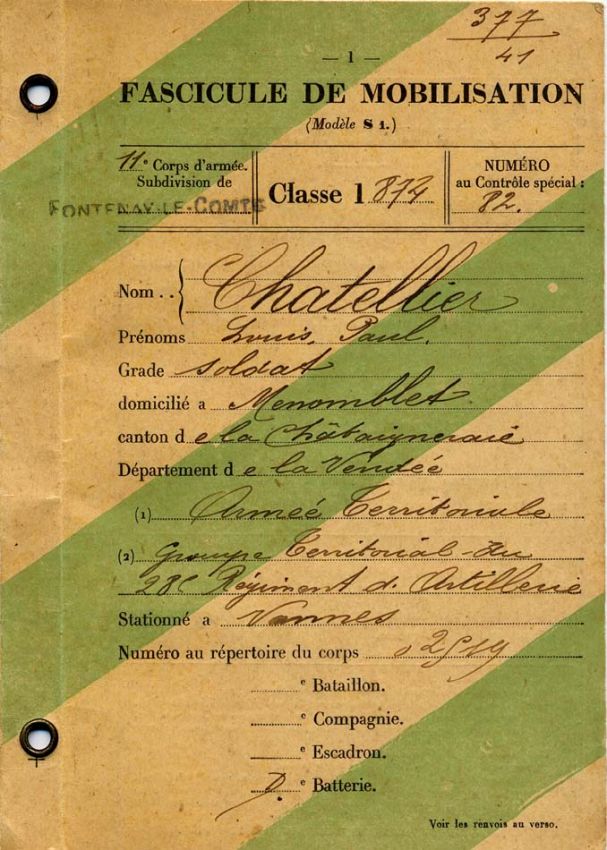 377
41
— 1 —
FASCICULE DE MOBILISATION
(Modèle S 1.)
11e Corps d'armée.
Subdivision de
FONTENAY-LE-COMTE
Classe 1 874
NUMÉRO
au Contrôle spécial :
82.
Nom . . Chatellier
Prénoms Louis, Paul.
Grade soldat
domicilié a Menomblet
canton d e la Châtaigneraie
Département d e la Vendée
(1) Armée Territoriale
(2) Groupe Territorial du
28e Régiment d. Artillerie
Stationné a Vannes
Numéro au répertoire du corps
e Bataillon.
e Compagnie.
e Escadron.
e Batterie.
Voir les renvois au verso.